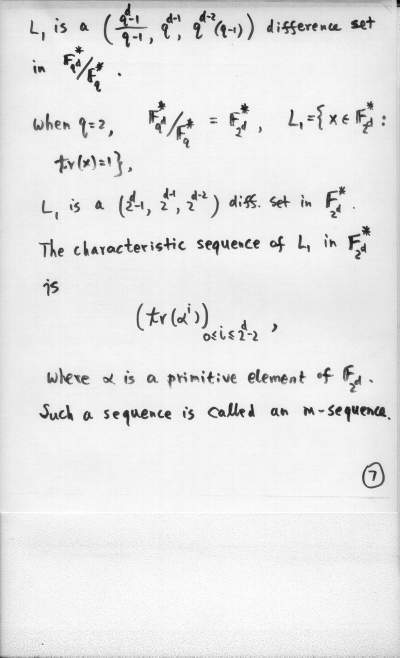 L₁ is a ( (q^d-1)/(q-1), q^{d-1}, q^{d-2}(q-1) ) difference set
in F*_{q^d}/F*_q .
When q=2, F*_{q^d}/F*_q = F*_{2^d}, L₁={x ∈ F*_{2^d} :
tr(x)=1},
L₁ is a (2^d-1, 2^{d-1}, 2^{d-2}) diff. set in F*_{2^d}.
The characteristic sequence of L₁ in F*_{2^d}
is
(tr(α^i))_{0≤i≤2^d-2} ,
where α is a primitive element of F_{2^d}.
Such a sequence is called an m-sequence.
7